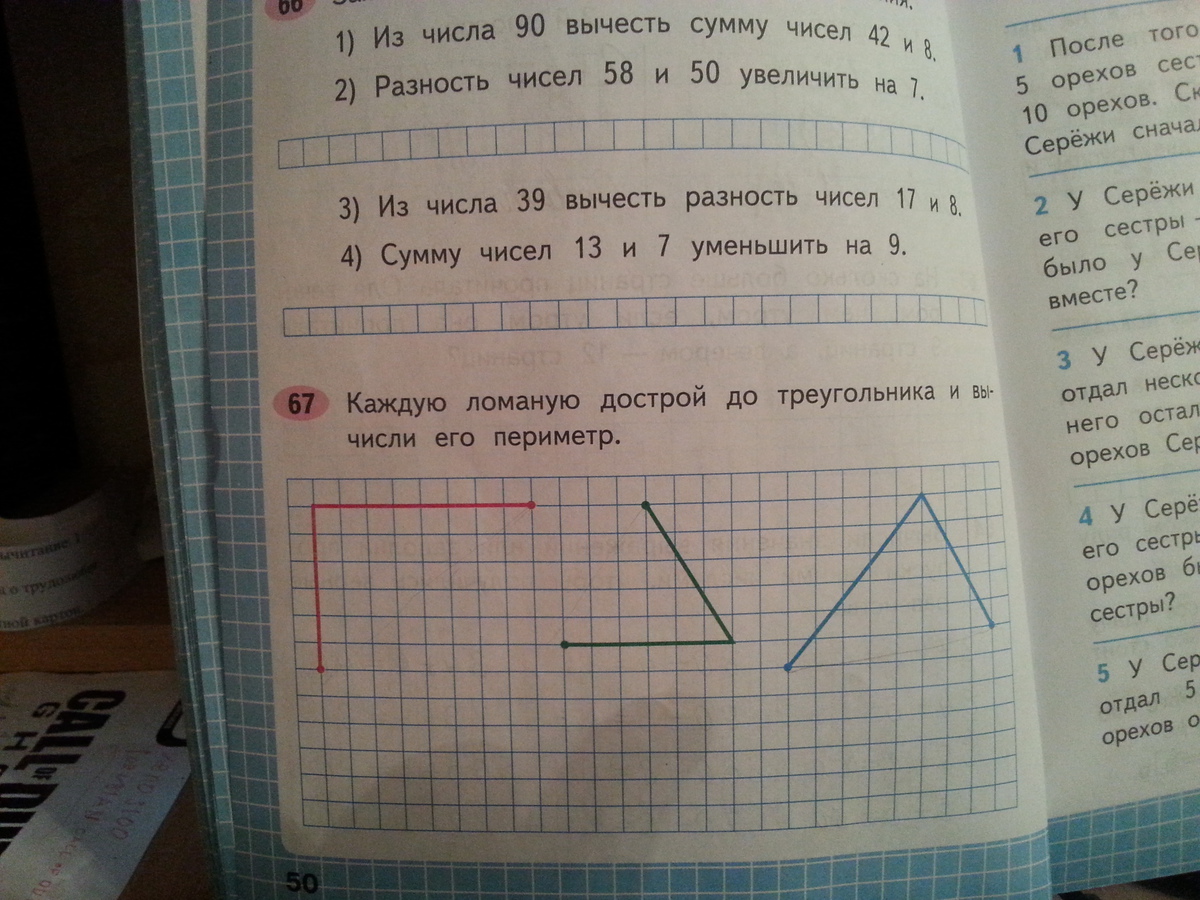 66
1) Из числа 90 вычесть сумму чисел 42 и 8.
2) Разность чисел 58 и 50 увеличить на 7.
3) Из числа 39 вычесть разность чисел 17 и 8.
4) Сумму чисел 13 и 7 уменьшить на 9.
67 Каждую ломаную дострой до треугольника и вы-
числи его периметр.
50
1 После того
5 орехов сест
10 орехов. Ск
Серёжи сначал
2 У Серёжи
его сестры
было у Сер
вместе?
3 У Серёж
отдал неско
него остал
орехов Сер
4 У Серё
его сестры
орехов б
сестры?
5 У Сер
отдал 5
орехов о
CALL OF DU
G H